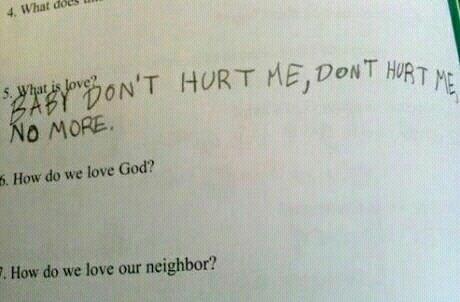 4. What does
5. What is love?
BABY DON'T HURT ME, DON'T HURT ME,
NO MORE.
6. How do we love God?
7. How do we love our neighbor?